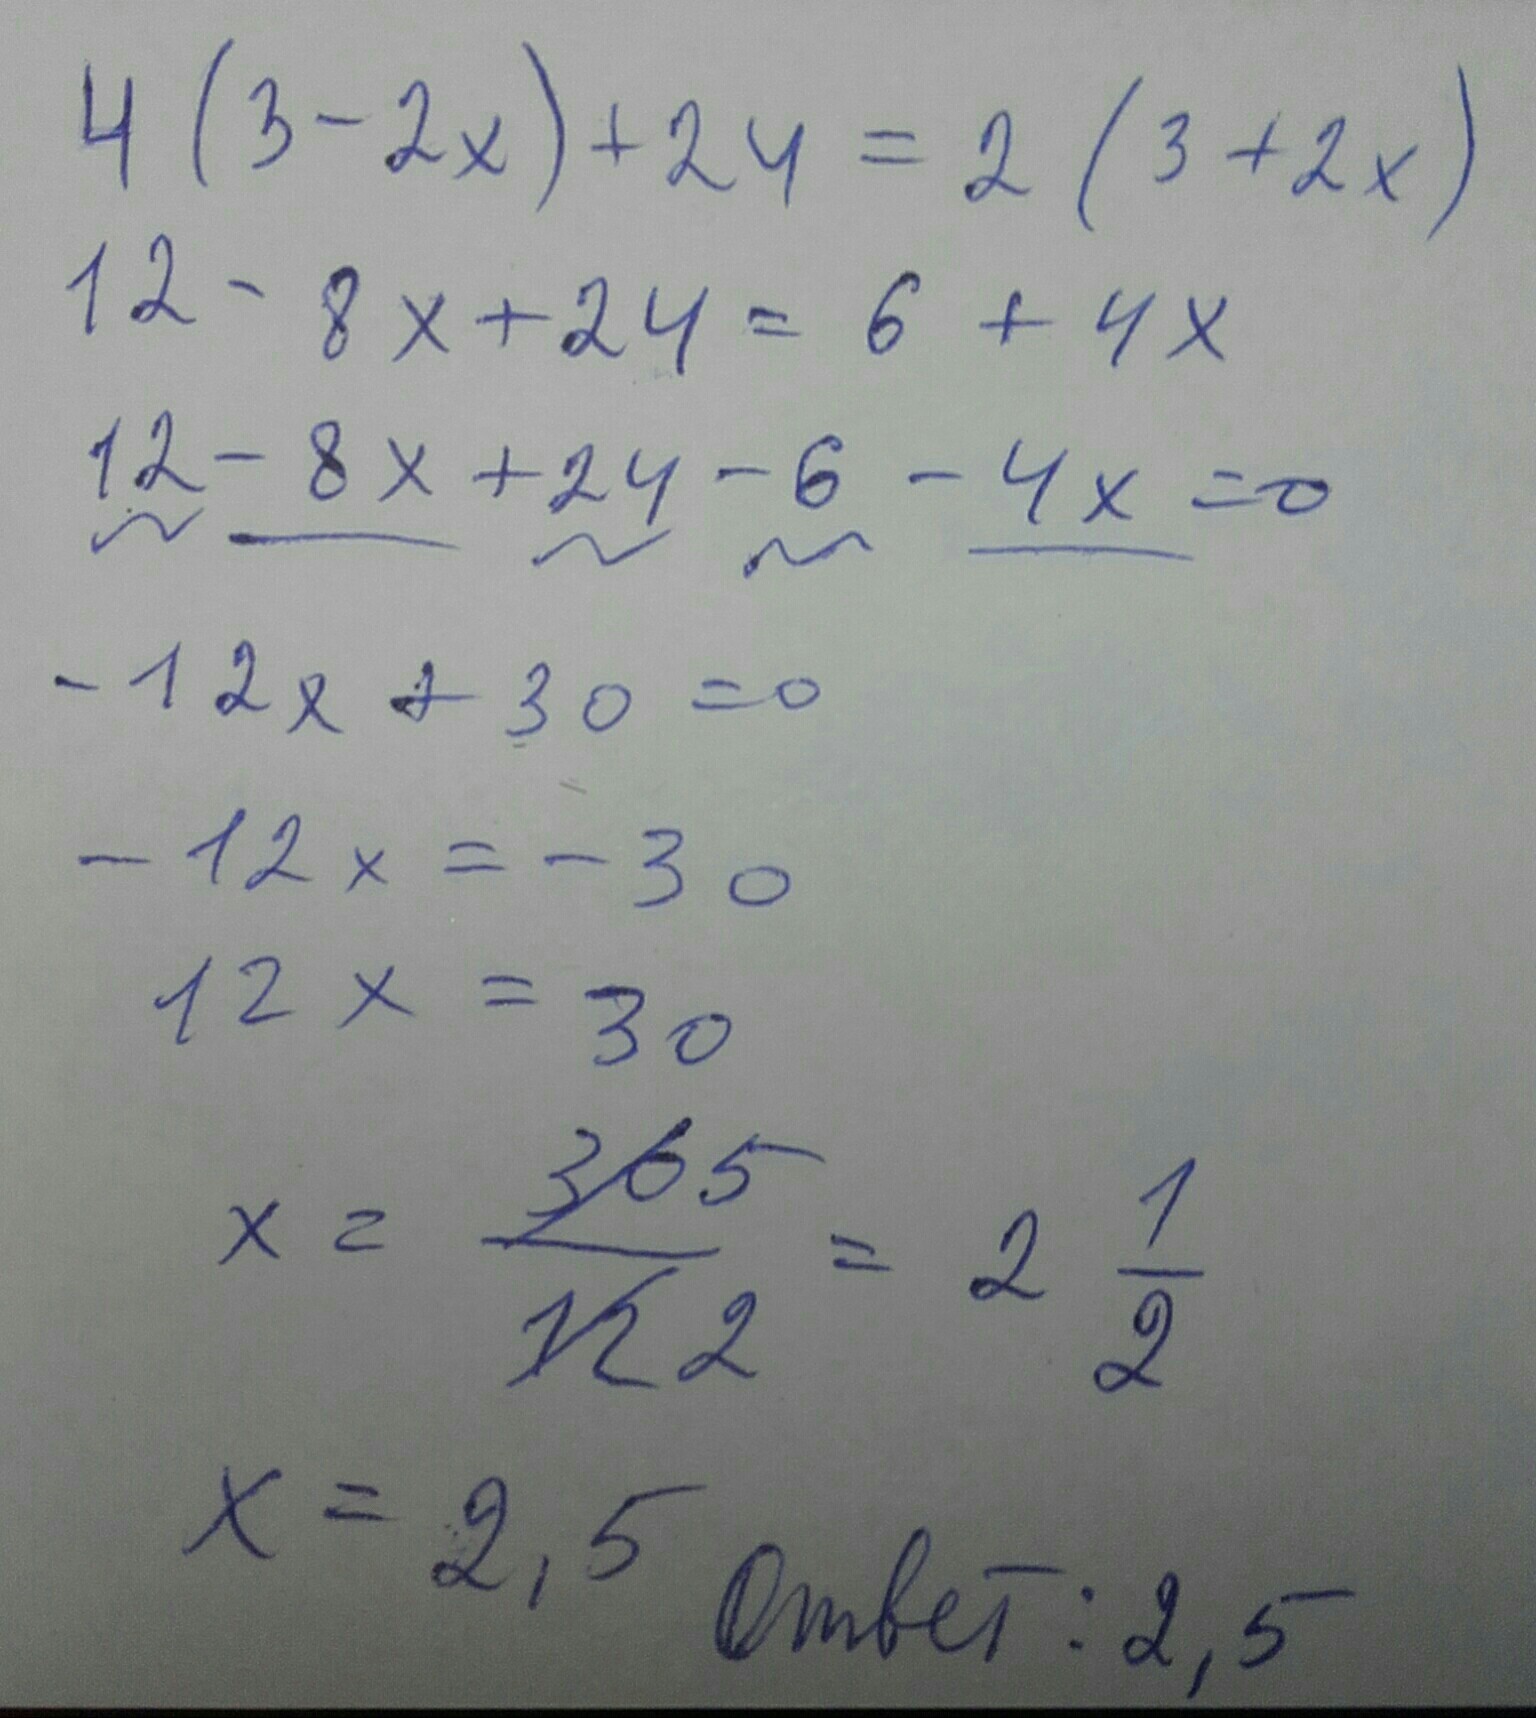 4(3-2x)+24=2(3+2x)
12-8x+24=6+4x
12-8x+24-6-4x=0
-12x+30=0
-12x=-30
12x=30
x=30 5/12 2=2 1/2
x=2,5 Ответ: 2,5